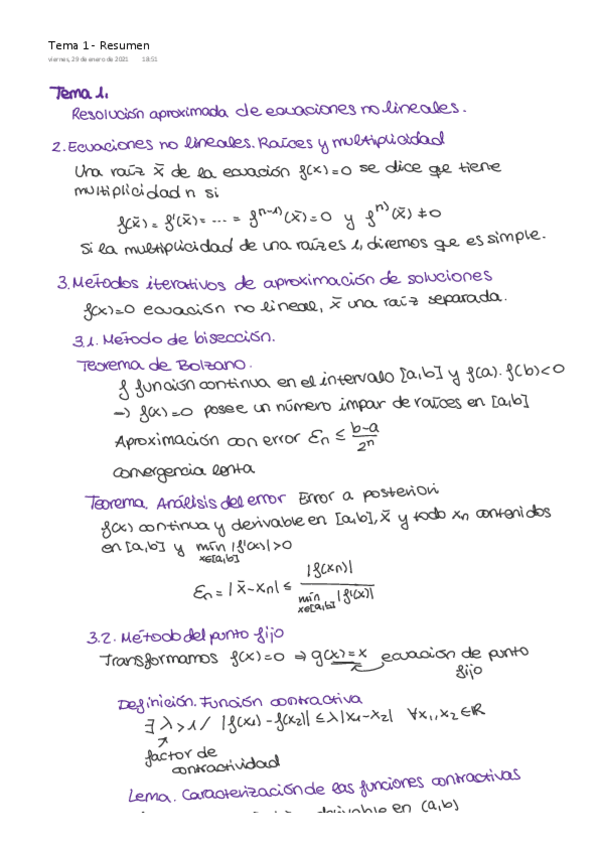 Tema 1 - Resumen
viernes, 29 de enero de 2021 18:51
Tema 1.
Resolución aproximada de ecuaciones no lineales.
2. Ecuaciones no lineales. Raíces y multiplicidad
Una raíz x̄ de la ecuación f(x)=0 se dice qe tiene
multiplicidad n si
f(x̄) = f'(x̄) = ... = fⁿ⁻¹⁾(x̄) = 0 y fⁿ⁾(x̄) ≠ 0
Si la multiplicidad de una raíz es 1, diremos que es simple.
3. Métodos iterativos de aproximación de soluciones
f(x)=0 ecuación no lineal, x̄ una raíz separada.
3.1. Método de bisección.
Teorema de Bolzano.
f función continua en el intervalo [a,b] y f(a). f(b)<0
→ f(x)=0 posee un número impar de raíces en [a,b]
Aproximación con error εn ≤ (b-a)/2ⁿ
convergencia lenta
Teorema. Análisis del error Error a posteriori
f(x) continua y derivable en [a,b], x̄ y todo xn contenidos
en [a,b] y mín x∈[a,b] |f'(x)|>0
εn = |x̄-xn| ≤ |f(xn)| / mín x∈[a,b] |f'(x)|
3.2. Método del punto fijo
Transformamos f(x)=0 ⇒ g(x)=x ecuación de punto
fijo
Definición. Función contractiva
∃ λ>1 / |f(x1) - f(x2)| ≤ λ|x1-x2| ∀x1,x2 ∈ ℝ
factor de
contractividad
Lema. Caracterización de las funciones contractivas
derivable en (a,b)